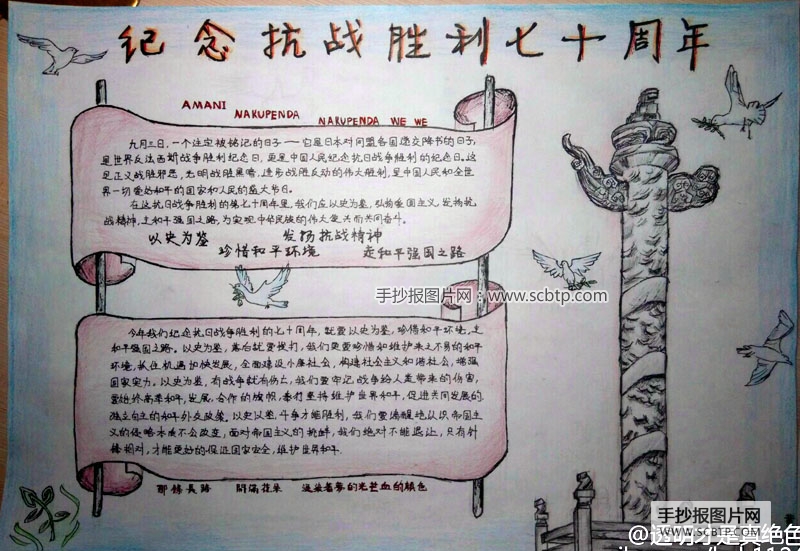 纪念抗战胜利七十周年
AMANI
NAKUPENDA
NAKUPENDA WE WE
九月三日,一个注定被铭记的日子——它是日本对同盟各国递交降书的日子,
是世界反法西斯战争胜利纪念日,更是中国人民纪念抗日战争胜利的纪念日。这
是正义战胜邪恶,光明战胜黑暗,进步战胜反动的伟大胜利,是中国人民和全世
界一切爱好和平的国家和人民的盛大节日。
在这抗日战争胜利的第七十周年里,我们应以史为鉴,弘扬爱国主义,发扬抗
战精神,走和平强国之路,为实现中华民族的伟大复兴而共同奋斗。
以史为鉴
发扬抗战精神
珍惜和平环境
走和平强国之路
手抄报图片网:www.scbtp.com
今年我们纪念抗日战争胜利的七十周年,就要以史为鉴,珍惜和平环境,走
和平强国之路。以史为鉴,落后就要挨打,我们更要珍惜和维护来之不易的和平
环境,抓住机遇加快发展,全面建设小康社会,构建社会主义和谐社会,增强
国家实力。以史为鉴,有战争就有伤亡,我们要牢记战争给人类带来的伤害,
要始终高举和平,发展,合作的旗帜,奉行坚持维护世界和平,促进共同发展的
独立自主的和平外交政策。以史以鉴,斗争才能胜利,我们要清醒地认识帝国主
义的侵略本质不会改变,面对帝国主义的挑衅,我们绝对不能退让,只有针
锋相对,才能更好的保证国家安全,维护世界和平.
那條長路
開滿花朵
手抄报图片网
www.scbtp.com
@透明才是真绝色